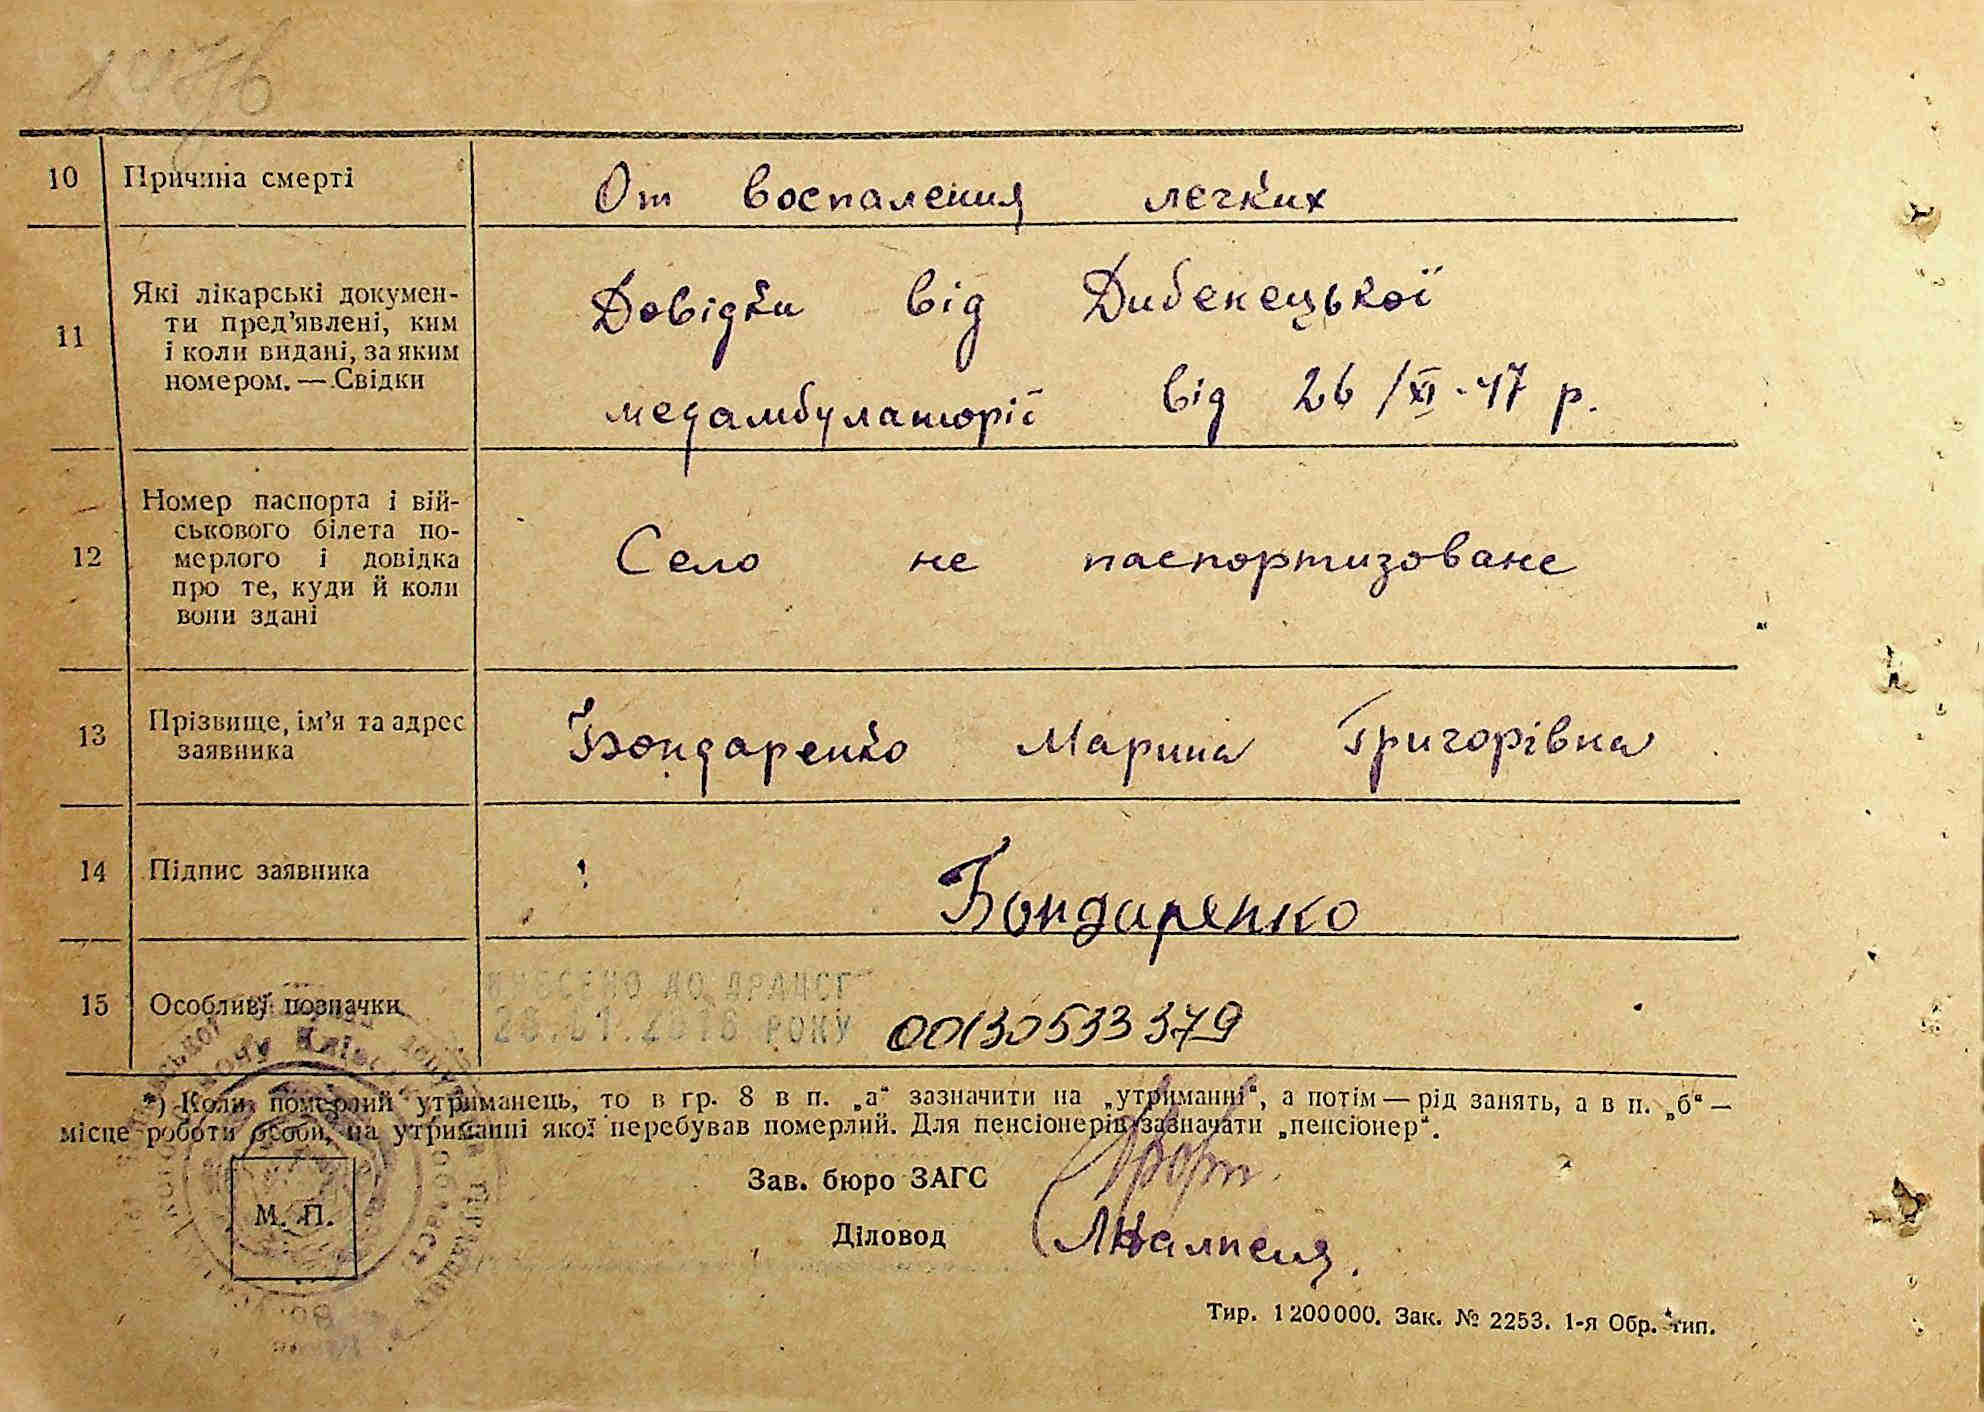 10 Причина смерті От воспаления легких
11 Які лікарські документи пред'явлені, ким
і коли видані, за яким
номером. — Свідки
Довідки від Дибенецької
медамбулаторії від 26/XI-47 р.
12 Номер паспорта і вій-
ськового білета по-
мерлого і довідка
про те, куди й коли
вони здані
Село не паспортизоване
13 Прізвище, ім'я та адрес
заявника
Бондаренко Марина Григорівна
14 Підпис заявника Бондаренко
15 Особливі позначки
ВНЕСЕНО ДО ДРАЦСГ
РОКУ
00130533379
*) Коли померлий утриманець, то в гр. 8 в п. „а“ зазначити на „утриманні“, а потім — рід занять, а в п. „б“ —
місце роботи особи, на утриманні якої перебував померлий. Для пенсіонерів зазначати „пенсіонер“.
Зав. бюро ЗАГС
Діловод
М. П.
Тир. 1200000. Зак. № 2253. 1-я Обр. тип.